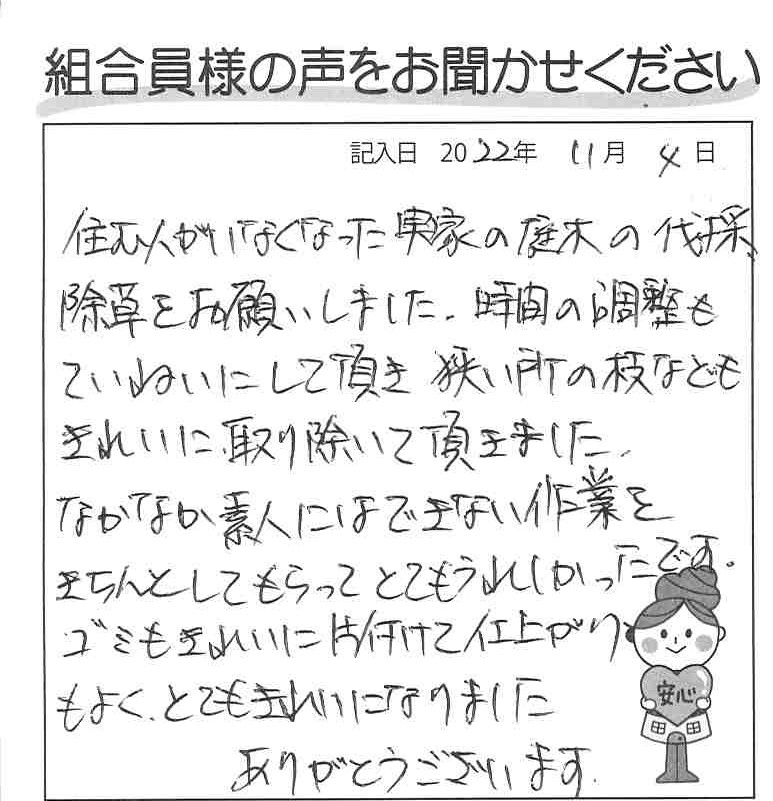 組合員様の声をお聞かせください
記入日 2022年 11月 4日
住む人がいなくなった実家の庭木の伐採、
除草をお願いしました。時間の調整も
ていねいにして頂き 狭い所の枝なども
きれいに取り除いて頂きました。
なかなか素人にはできない作業を
きちんとしてもらって とてもうれしかったです。
ゴミもきれいに片付けて仕上がり
もよく、とてもきれいになりました
ありがとうございます。
安心